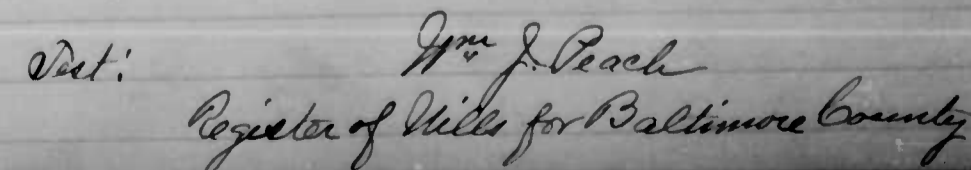 Test: Wm J. Peach
Register of Wills for Baltimore County